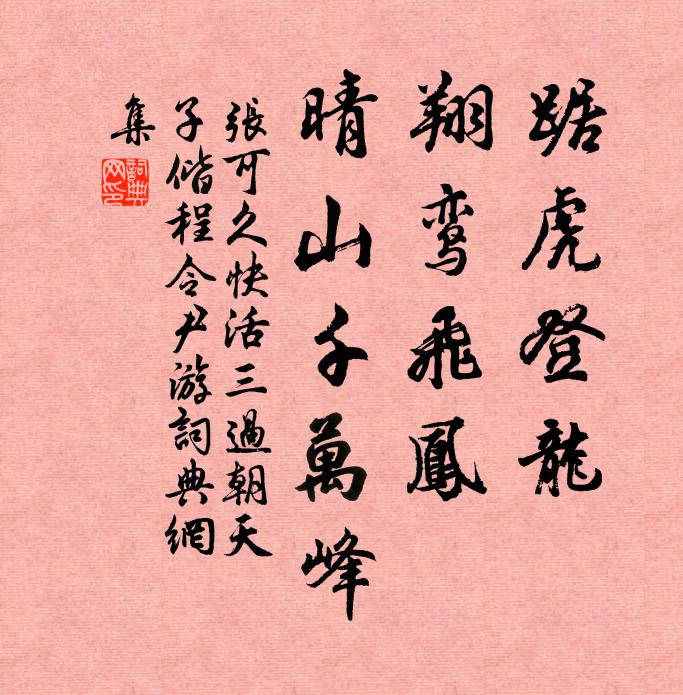 踞虎登龍
翔鸾飛鳳
晴山千萬峰
張可久快活三過朝天
子偕程令尹游詞典網
集
詞典
网印